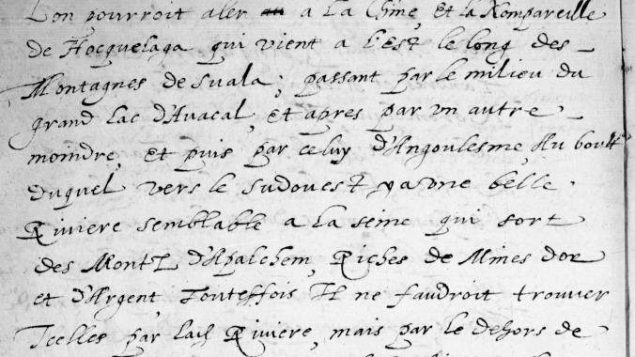 Lon pourroit aler a La Chine, et la Nompareille
de Hocquelaga qui vient a L'Est le long des
Montagnes de Suala; passant par le milieu du
grand Lac d'Avacal, et apres par un autre
moindre, et puis par celuy d'Angoulesme, Au boult
duquel vers le sudouest y a une belle
Riviere semblable a La seine qui sort
des Montz d'Apalchem, Riches de Mines d'or
et d'Argent, Touteffois Il ne faudroit trouver
Icelles par Riviere, mais par le dehors de